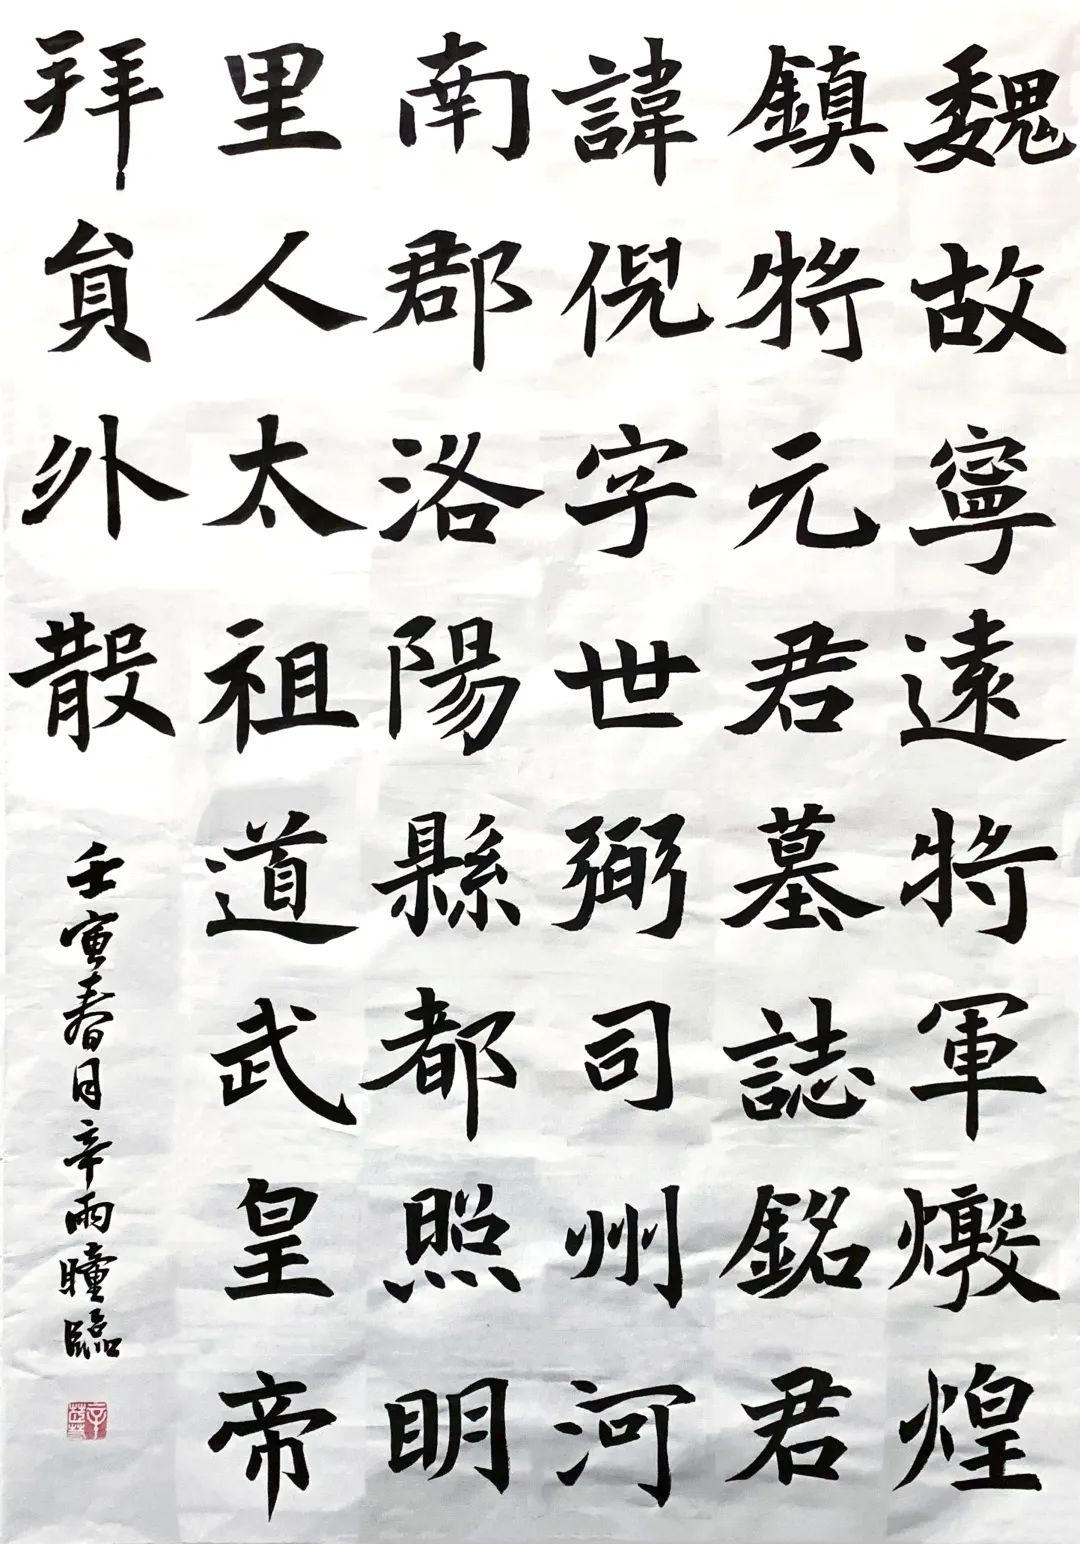 魏故寧遠將軍燉煌
鎮將元君墓誌銘君
諱倪字世弼司州河
南郡洛陽縣都照明
里人太祖道武皇帝
拜員外散
壬寅春月辛雨瞳臨